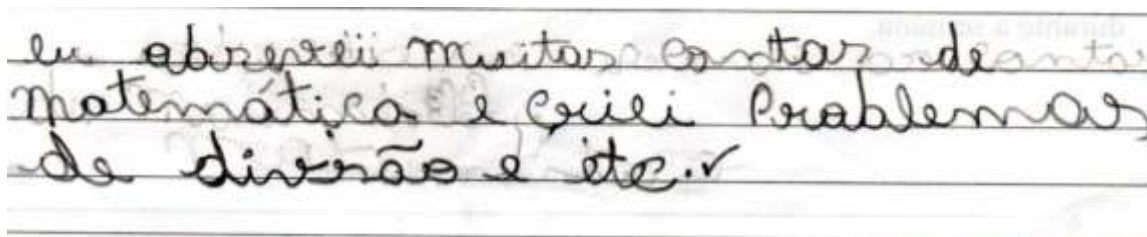 eu abreveii muitas contas de
matemática e criei Problemas
de divisão e etc.